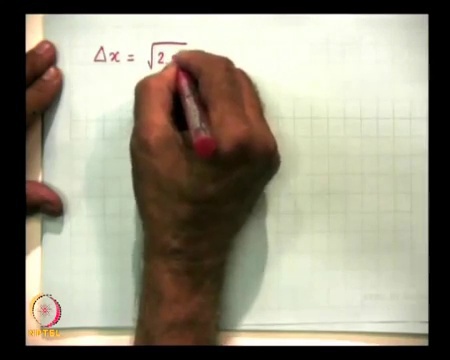 Δx = √2
NPTEL